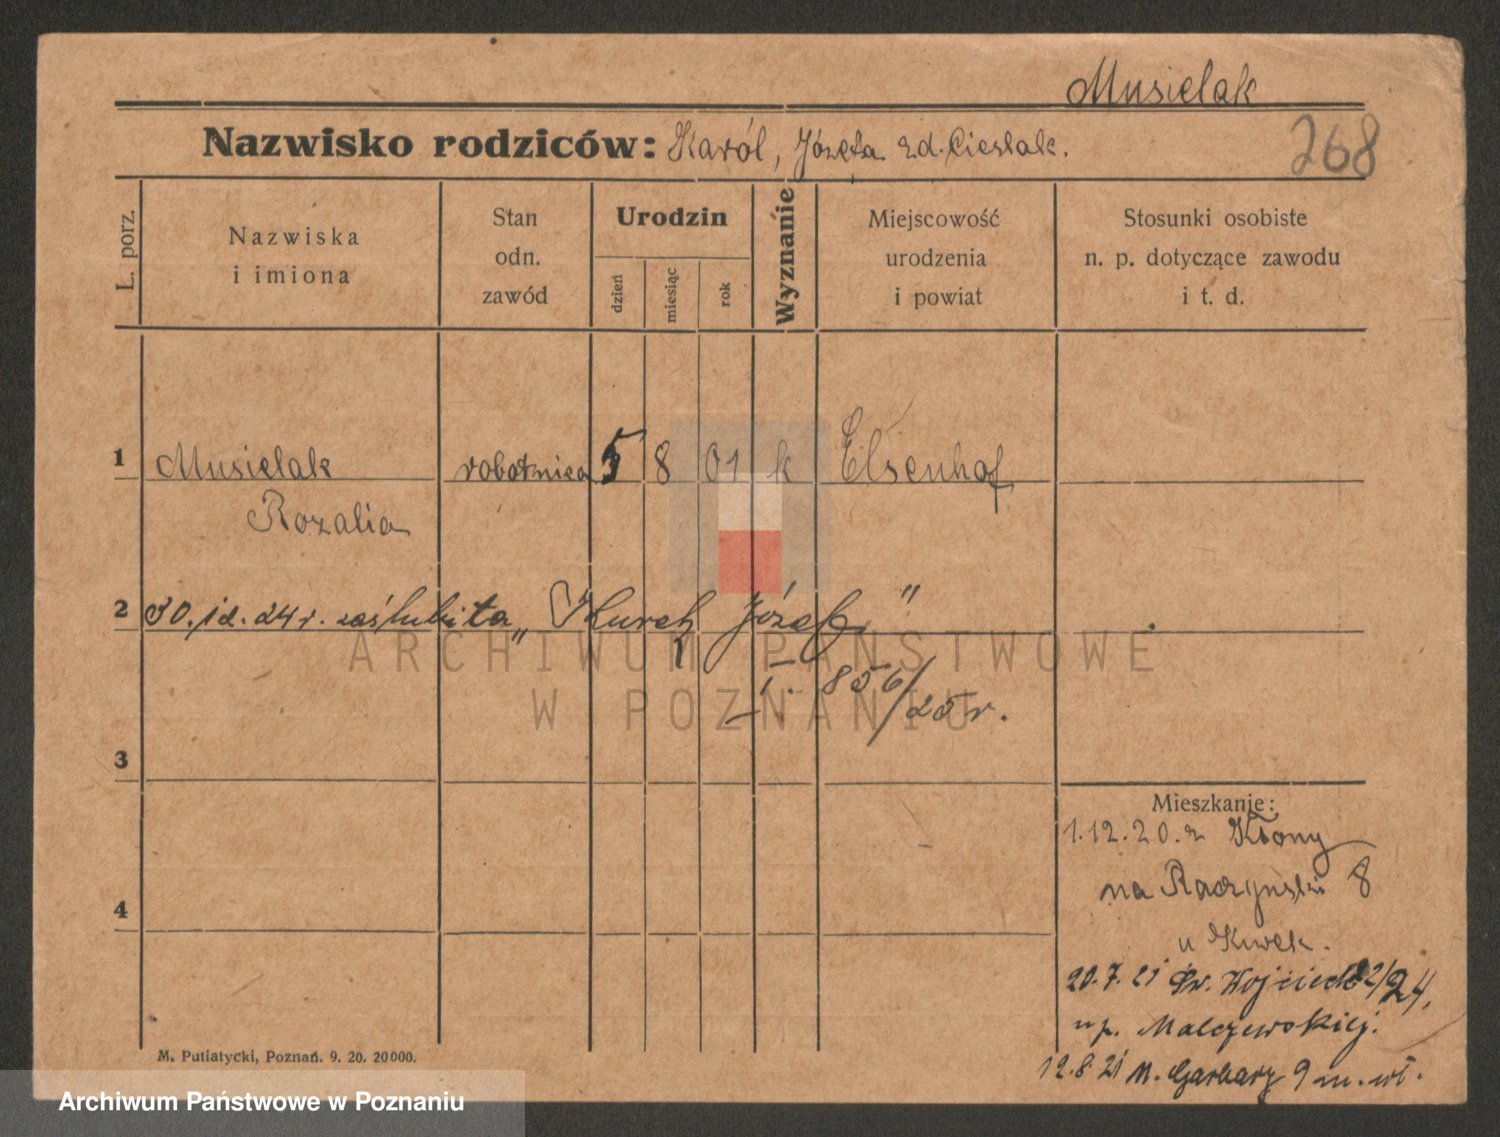 Musielak
Nazwisko rodziców: Karól, Józefa zd. Cieslak.
268
L. porz.
Nazwiska
i imiona
Stan
odn.
zawód
Urodzin
dzień
miesiąc
rok
Wyznanie
Miejscowość
urodzenia
i powiat
Stosunki osobiste
n. p. dotyczące zawodu
i t. d.
1 Musielak robotnica 5 8 01 k Elsenhof
Rozalia
2 30. 12. 24 r. zaślubita „ Józef "
ARCHIWUM PAŃSTWOWE
I. 856/25 r.
W POZNANIU
3
Mieszkanie:
1.12.20. z Kłony
4
na Radzynski 8
u Kwek.
20.7.21 Św. Wojciech 2/24,
u p. Malczewskiej.
12.8.21 M. Garbary 9 m. wł.
M. Putiatycki, Poznań. 9. 20. 20000.
Archiwum Państwowe w Poznaniu